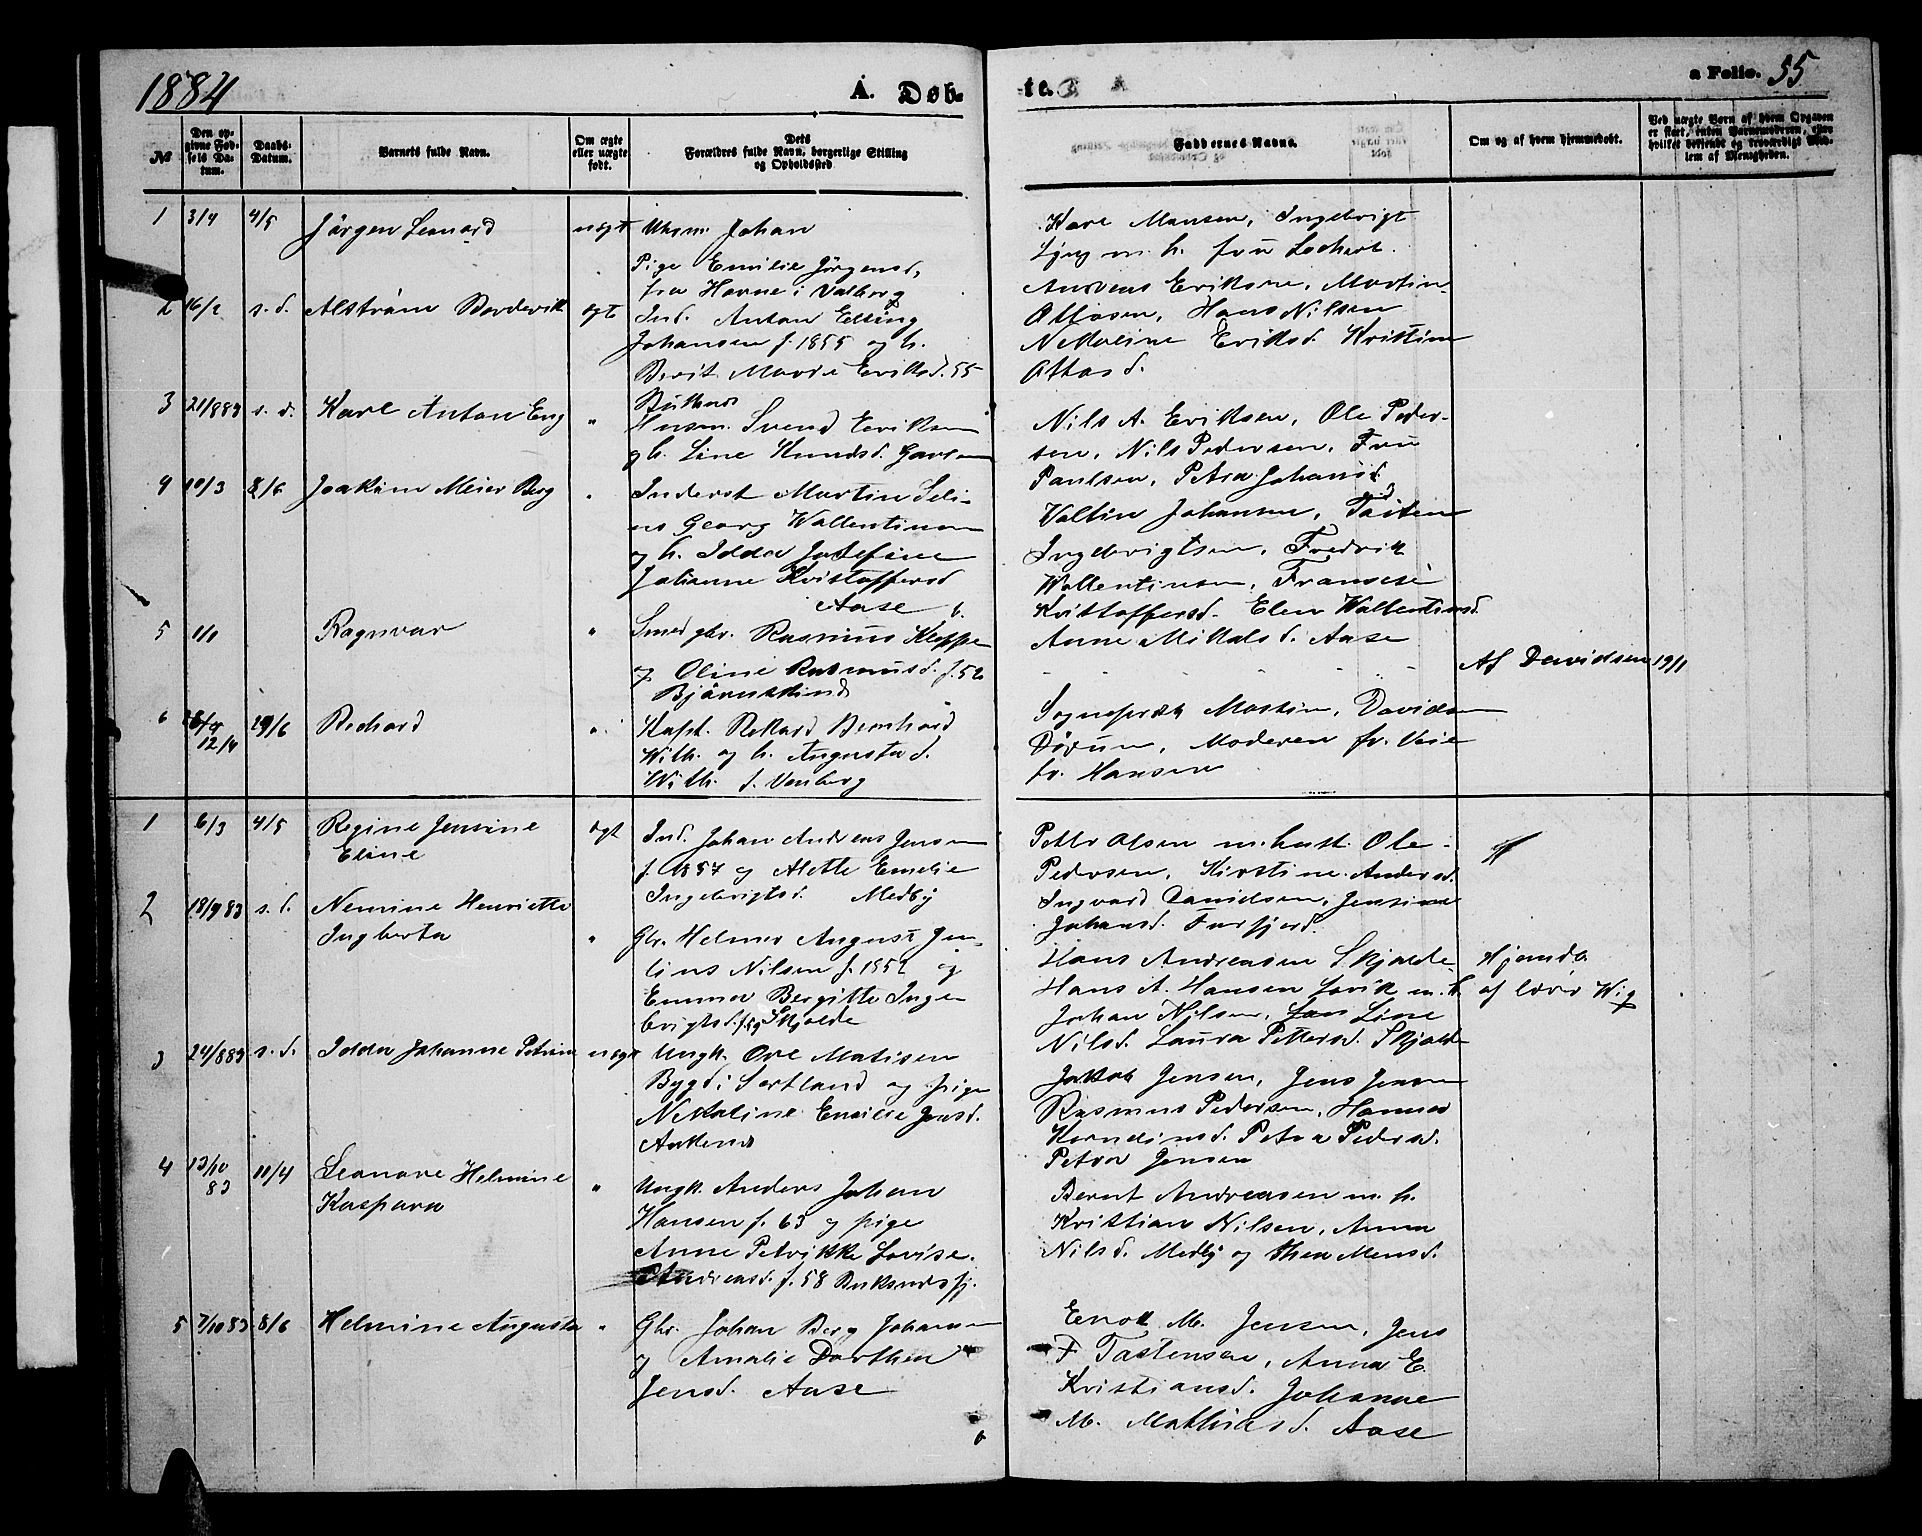 1884
A. Døb-
te.
a Folio. 55
№
Den op-
givne Fød-
sels Da-
tum.
Daabs-
Datum.
Barnets fulde Navn.
Om ægte
eller uægte
født.
Dets
Forældres fulde Navn, borgerlige Stilling
og Opholdssted.
Faddernes Navne.
Om og af hvem hjemmedøbt.
Ved uægte Børn af hvem Opgaven
er skeet, enten Barnemoderen, eller
hvilket bosiddende og troværdigt Med-
lem af Menigheden.
1 3/4 4/5 Jörgen Leonard uægt Johan
Pige Emilie Jörgensd,
fra Havne i Valberg
Kare Monsen, Ingebrigt
m. h. fru Lochert.
2 16/2 s. d. Alström Borderik ægte Ind. Anton Edling
Johansen f. 1855 og h.
Berit Marie Eriksd. 55
Andreas Eriksen, Martin
Ottosen, Hans Nilsen
Nekoline Eriksd. Kristine
Ottosd.
3 21/883 s. d. Karl Anton Eng "
Husm. Svend Eriksen
og h. Line Knudsd.
Nils A. Eriksen, Ole Peder-
sen, Nils Pedersen, Fru
Paulsen, Petra Johansd.
4 10/3 8/6 Joakim Meier Berg "
Inderst Martin Seli-
us Georg Wallentinsen
og h. Idda Josefine
Johanne Kristoffersd
Aase
Valtin Johansen, Tasten
Ingebrigtsen, Fredrik
Wallentinsen, Fransese
Kristoffersd. Elen Wallentinsd.
Anne Mikalsd. Aase
5 1/1 Ragnvar "
Smed gbr. Rasmus Kleppe
og Oline Rasmusd. f. 52
Bjørnskind
Af Davidsen 19/1
6 12/4 29/6 Richard "
Kapt. Rikard Bernhard
With. og h. Augusta d.
With. f. Vanberg
Sogneprest Mostin, Davidsen
Dörum, Moderen fr. Veie
fr. Hansen
1 6/3 4/5 Regine Jensine
Eline ægt
Ind. Johan Andreas Jensen
f. 1857 og Alette Emelie
Ingebrigtsd. Medby
Petter Olsen m. hust. Ole
Pedersen, Kirstine Andersd.
Ingvard Danielsen, Jensine
Johansd. Furfjord.
2 18/9 83 s. d. Nemine Henriette
Ingberta "
Gbr. Helmer August Ju-
lius Nilsen f. 1852 og
Emma Bergitte Inge
brigtsd. f. 59 Skjolde
Hans Andreasen Skjolde
Hans A. Hansen Lovik m. h.
Johan Nilsen, Line
Nilsd. Laura Pettersd. Skjolde
Hjemdb.
af lærer Wig
3 24/883 s. d. Idda Johanne Petrine uægt
Ungk. Ole Matisen
Bygd i Sortland og pige
Nekoline Emilie Jensd.
Ankenes
Jakob Jensen, Jens Jensen
Rasmus Pedersen, Hanna
Korneliusd. Petra Pedersd.
Petra Jensen
4 13/10
83 11/4 Leonore Helmine
Kaspara "
Ungk. Anders Johan
Hansen f. 63 og pige
Anne Petrikke Lovise
Andreasd. f. 58 Buksnesfj.
Bernt Andreasen m. h.
Kristian Nilsen, Anna
Nilsd. Medby og Thea Monsd.
5 7/10 83 8/6 Helmine Augusta "
Gbr. Johan Berg Johansen
og Amalie Dorthea
Jensd. Aase
Enok M. Jensen, Jens
F Tastensen, Anna E.
Kristiansd. Johanne
M. Mathiasd. Aase